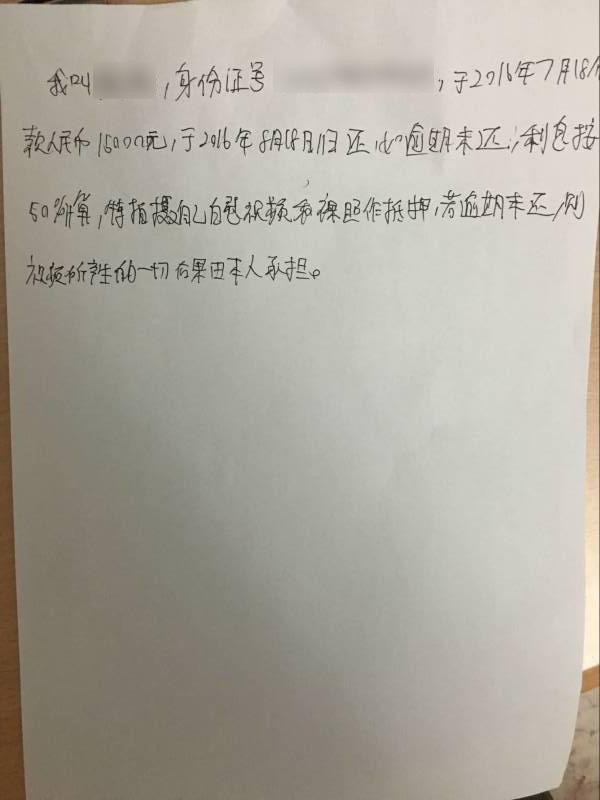 我叫 ,身份证号 ,于2016年7月18
款人民币15000元,于2016年8月18日归还,如逾期未还,利息按
50%算,特拍摄自己自慰视频和裸照作抵押,若逾期未还,则
视频所产生的一切后果由本人承担。